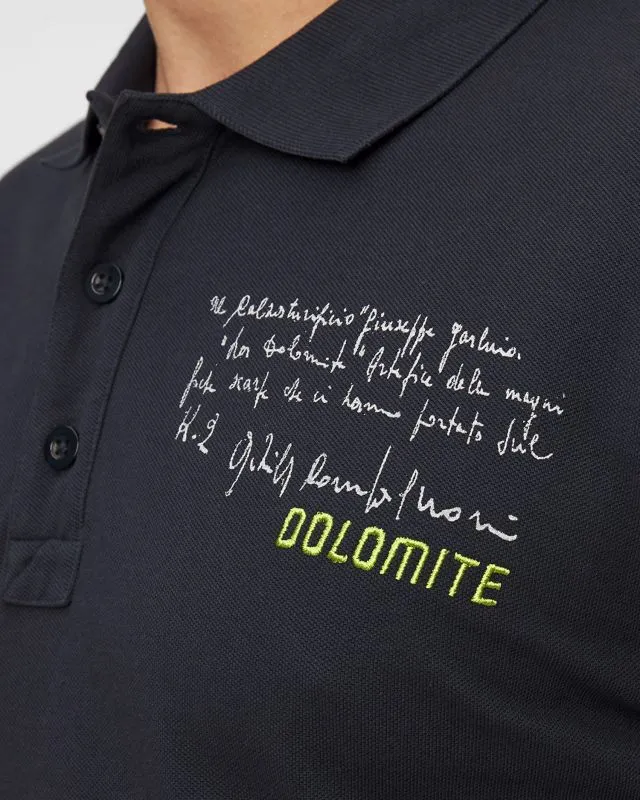 Al Calzaturificio "Giuseppe Garbuio.
"Dolomite" Artefice delle magni
fiche scarpe che ci hanno portato sul
K.2
DOLOMITE